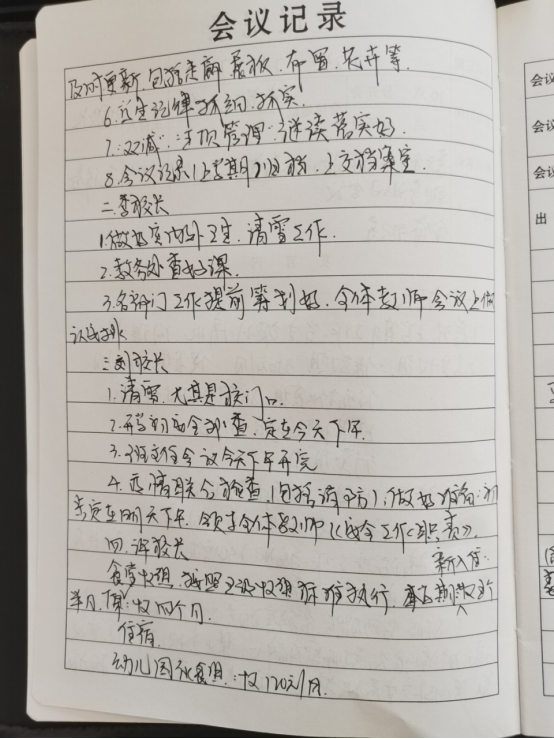 会议记录
及时更新,包括走廊展板、布置、花卉等.
6.卫生纪律抓细、抓实.
7.“双减”、专项管理、继续落实好.
8.会议记录(上学期)归档,上交档案室.
二.李校长
1.做好室内外卫生,清雪工作.
2.教务处查好课.
3.各部门工作提前筹划好,全体教师会议上做
认真安排
三.刘校长
1.清雪,尤其是校门口.
2.开学初安全排查,定在今天下午.
3.班主任会议今天下午开完
4.疫情联合检查(包括消防),做好准备:初
步定在明天下午.领学全体教师《安全工作职责》.
四.译校长
新入住.
食堂收费,按照之前收费标准执行,
半月,住:收四个月.
住宿
幼儿园伙食费:收120元/月.
会议
会议
会议
出